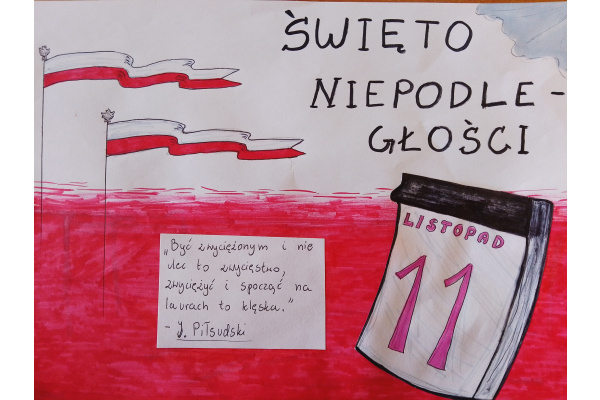 ŚWIĘTO
NIEPODLE-
GŁOŚCI
LISTOPAD
11
„Być zwyciężonym i nie
ulec to zwycięstwo,
zwyciężyć i spocząć na
laurach to klęska."
- J. Piłsudski